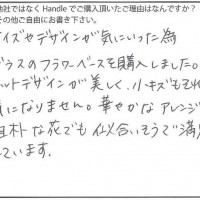 他社ではなくHandleでご購入頂いたご理由はなんですか？
その他ご自由にお書き下さい。
イズやデザインが気にいった為
ラスのフラワーベースを購入しました。
ットデザインが美しく、小キズもそれ
気になりません。華やかなアレンジ
且朴な花でも似合いそうで満足
ています.